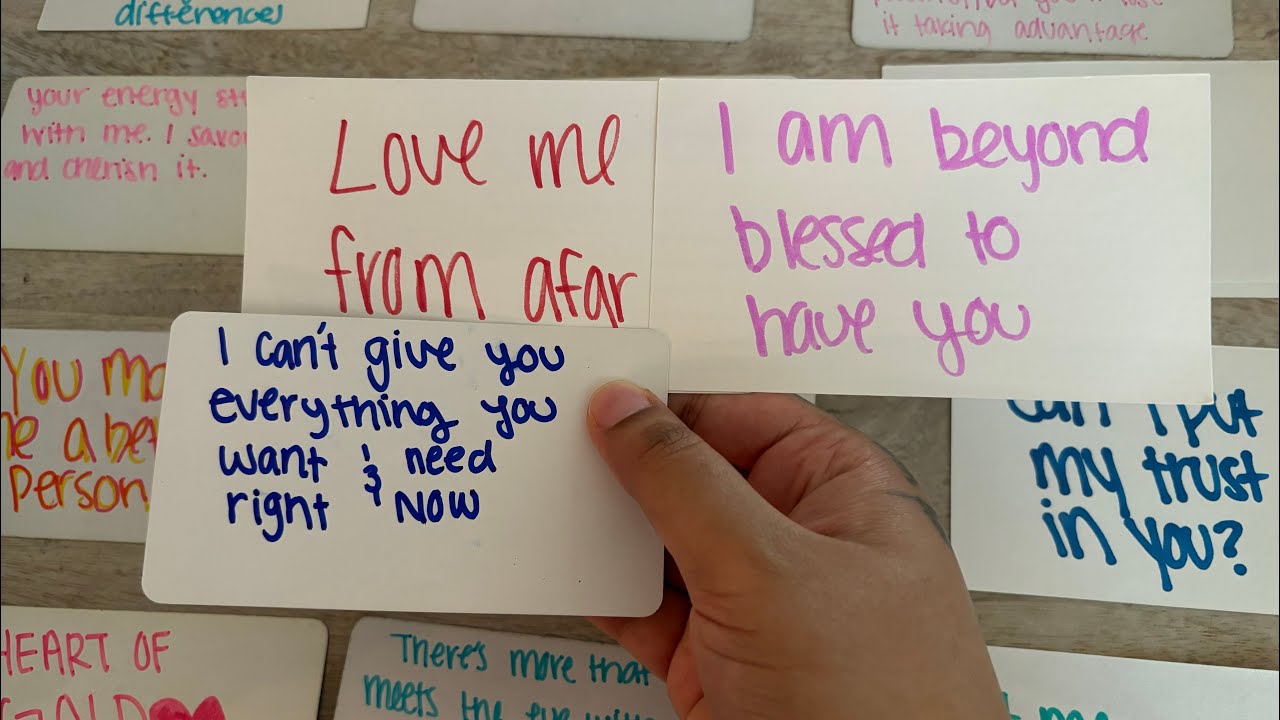 differences
it taking advantage
your energy
with me. I
and cherish it.
Love me
from afar
I am beyond
blessed to
have you
I can't give you
everything you
want & need
right NOW
You
a
Person
can I put
my trust
in you?
HEART OF
There's more that
meets the